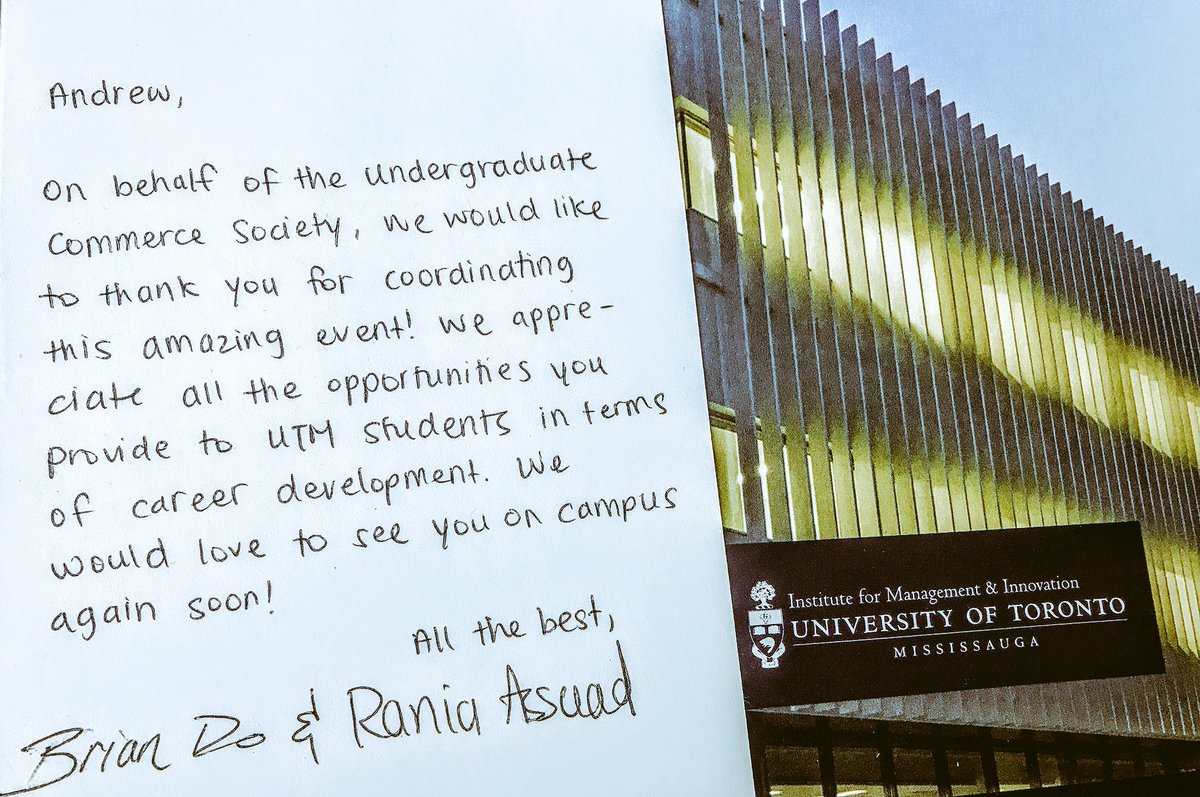 Andrew,
On behalf of the undergraduate
Commerce Society, we would like
to thank you for coordinating
this amazing event! We appre-
ciate all the opportunities you
provide to UTM students in terms
of career development. We
would love to see you on campus
again soon!
All the best,
Brian Do & Rania Assuad
Institute for Management & Innovation
UNIVERSITY OF TORONTO
MISSISSAUGA